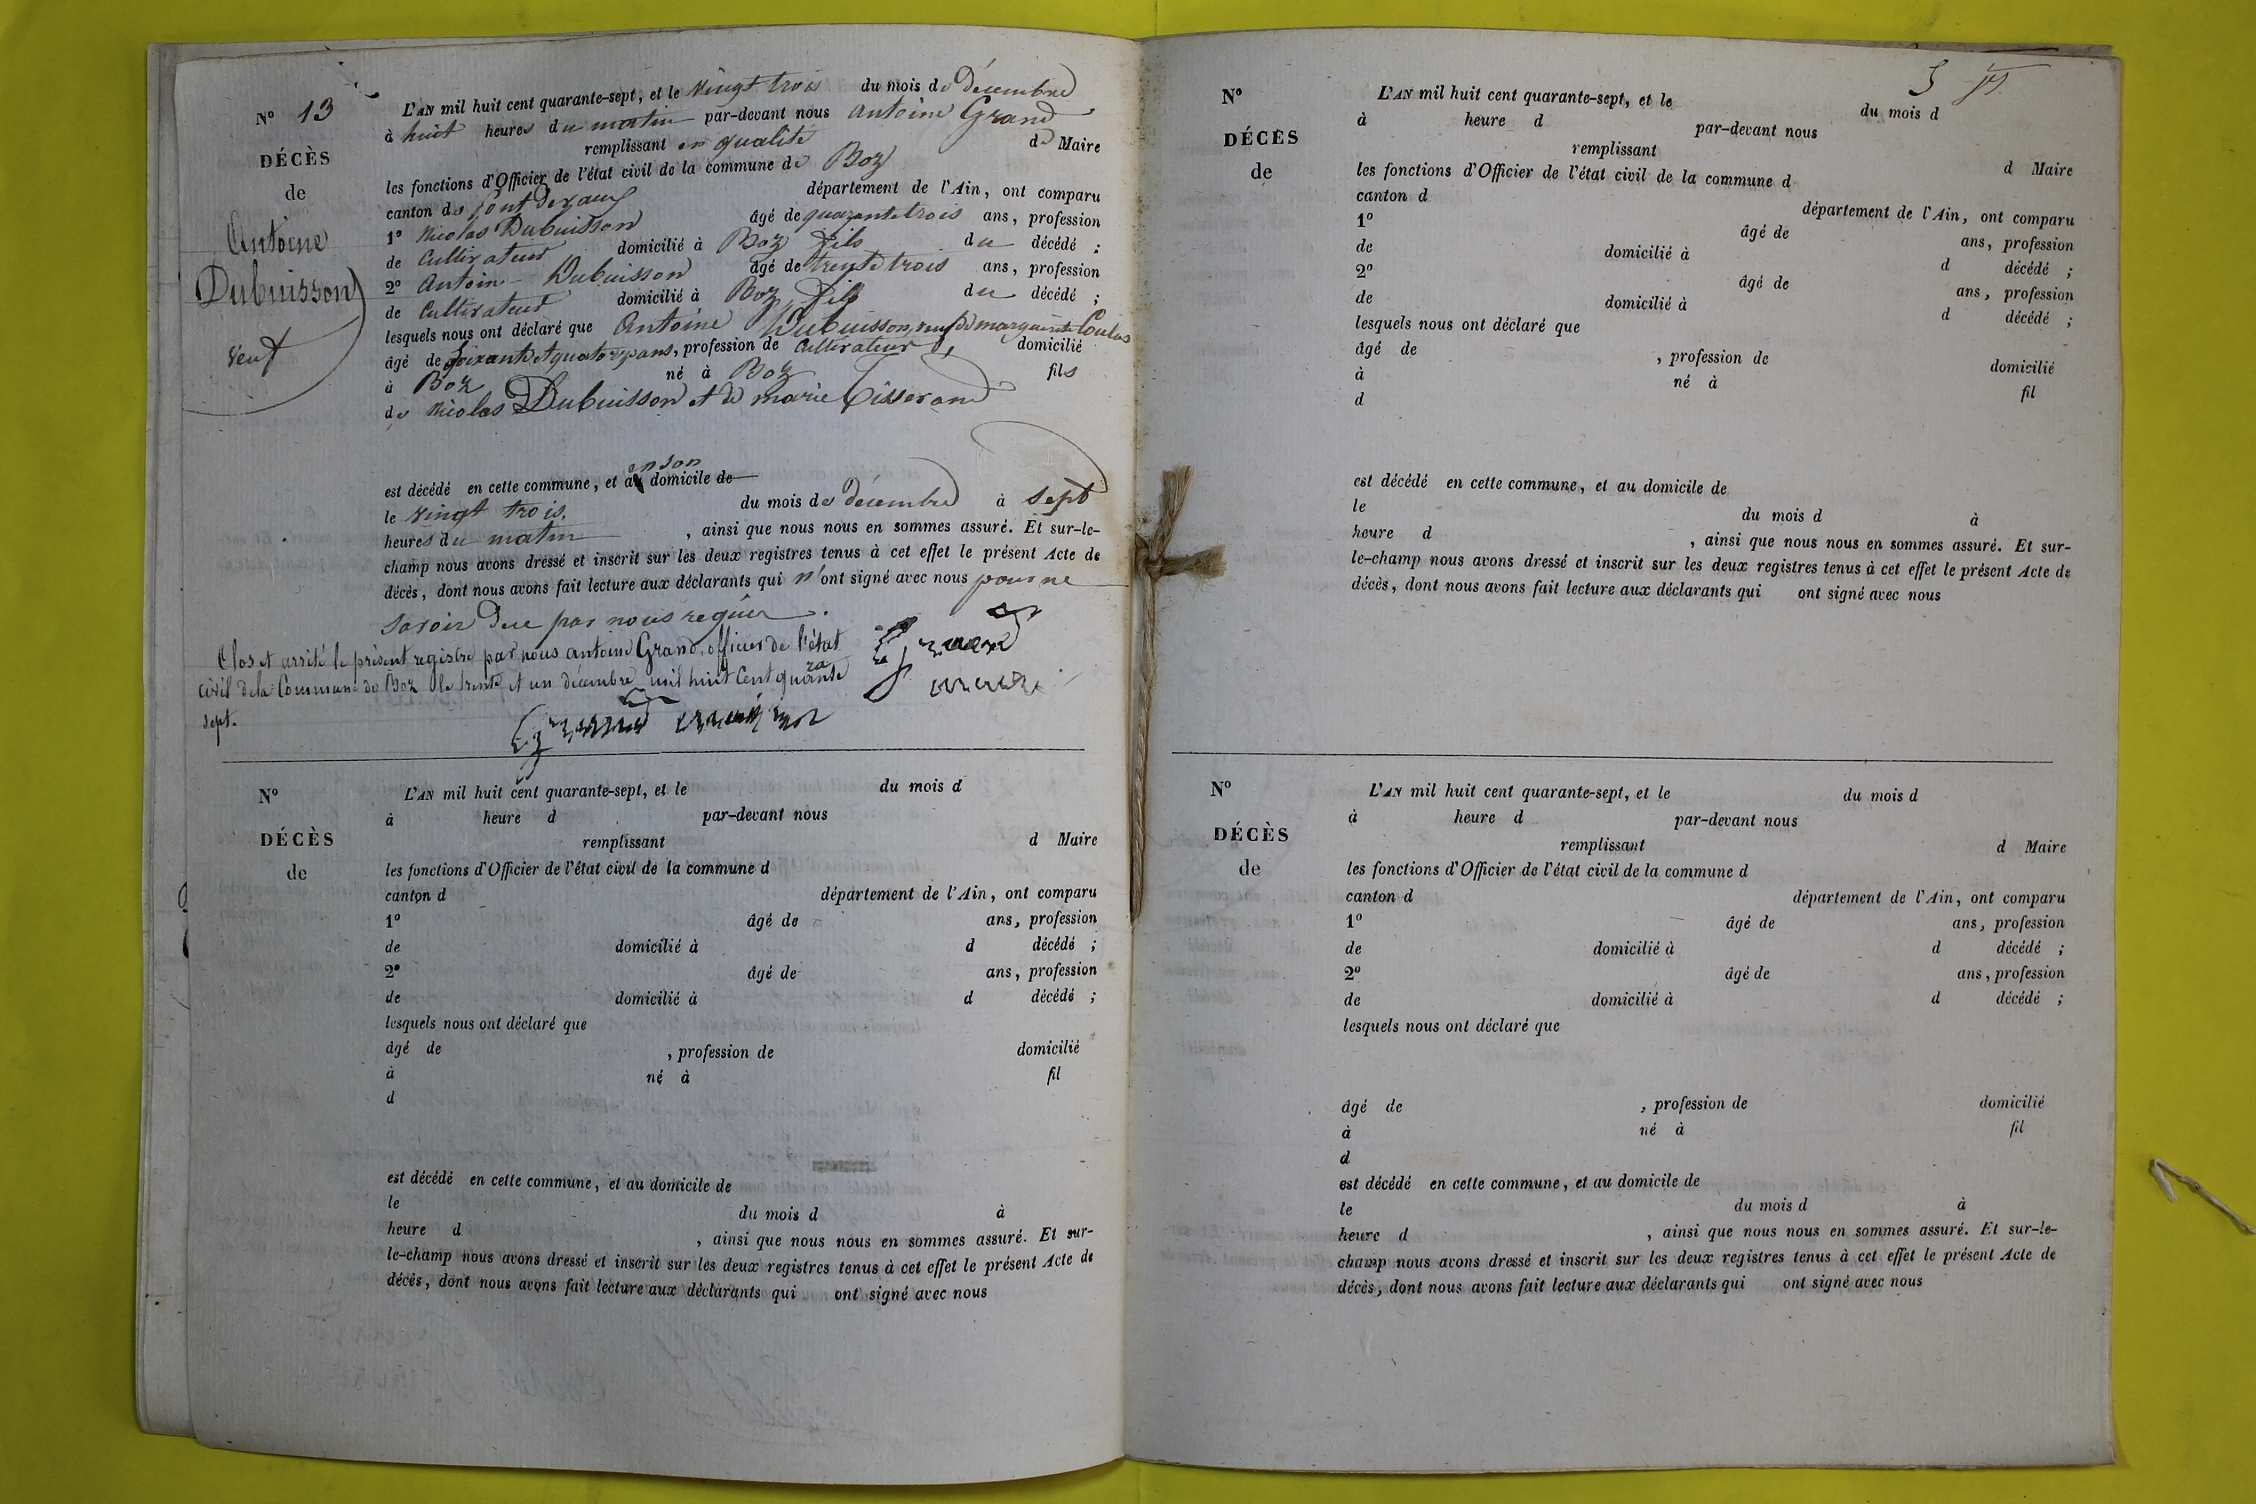 N° 13
DÉCÈS
de
Antoine
Dubuisson
veuf
L'AN mil huit cent quarante-sept, et le vingt trois du mois de décembre
à huit heures du matin par-devant nous antoine Grand
remplissant en qualité de Maire
les fonctions d'Officier de l'état civil de la commune de Boz
canton de pont de vaux département de l'Ain, ont comparu
1° Nicolas Dubuisson âgé de quarante trois ans, profession
de cultivateur domicilié à Boz fils du décédé ;
2° Antoine Dubuisson âgé de trente trois ans, profession
de cultivateur domicilié à Boz, fils du décédé ;
lesquels nous ont déclaré que Antoine Dubuisson, veuf de marguerite Coulas
âgé de soixante et quatorze ans, profession de cultivateur, domicilié
à Boz né à Boz fils
de Nicolas Dubuisson et de marie Tisserand
en son
est décédé en cette commune, et au domicile de
le vingt trois. du mois de décembre à sept
heures du matin, ainsi que nous nous en sommes assuré. Et sur-le-
champ nous avons dressé et inscrit sur les deux registres tenus à cet effet le présent Acte de
décès, dont nous avons fait lecture aux déclarants qui n'ont signé avec nous pour ne
savoir de ce par nous requis.
Clos et arrêté le présent registre par nous antoine Grand, officier de l'état
civil de la Commune de Boz le trente et un décembre mil huit cent quarante
sept.
Grand
maire
Grand
N°
DÉCÈS
de
L'AN mil huit cent quarante-sept, et le du mois d
à heure d par-devant nous
remplissant d Maire
les fonctions d'Officier de l'état civil de la commune d
canton d département de l'Ain, ont comparu
1° âgé de ans, profession
de domicilié à d décédé ;
2° âgé de ans, profession
de domicilié à d décédé ;
lesquels nous ont déclaré que
âgé de , profession de domicilié
à né à fil
d
est décédé en cette commune, et au domicile de
le du mois d à
heure d , ainsi que nous nous en sommes assuré. Et sur-
le-champ nous avons dressé et inscrit sur les deux registres tenus à cet effet le présent Acte de
décès, dont nous avons fait lecture aux déclarants qui ont signé avec nous
5
N°
DÉCÈS
de
L'AN mil huit cent quarante-sept, et le du mois d
à heure d par-devant nous
remplissant d Maire
les fonctions d'Officier de l'état civil de la commune d
canton d département de l'Ain, ont comparu
1° âgé de ans, profession
de domicilié à d décédé ;
2° âgé de ans, profession
de domicilié à d décédé ;
lesquels nous ont déclaré que
âgé de , profession de domicilié
à né à fil
d
est décédé en cette commune, et au domicile de
le du mois d à
heure d , ainsi que nous nous en sommes assuré. Et sur-
le-champ nous avons dressé et inscrit sur les deux registres tenus à cet effet le présent Acte de
décès, dont nous avons fait lecture aux déclarants qui ont signé avec nous
N°
DÉCÈS
de
L'AN mil huit cent quarante-sept, et le du mois d
à heure d par-devant nous
remplissant d Maire
les fonctions d'Officier de l'état civil de la commune d
canton d département de l'Ain, ont comparu
1° âgé de ans, profession
de domicilié à d décédé ;
2° âgé de ans, profession
de domicilié à d décédé ;
lesquels nous ont déclaré que
âgé de , profession de domicilié
à né à fil
d
est décédé en cette commune, et au domicile de
le du mois d à
heure d , ainsi que nous nous en sommes assuré. Et sur-le-
champ nous avons dressé et inscrit sur les deux registres tenus à cet effet le présent Acte de
décès, dont nous avons fait lecture aux déclarants qui ont signé avec nous